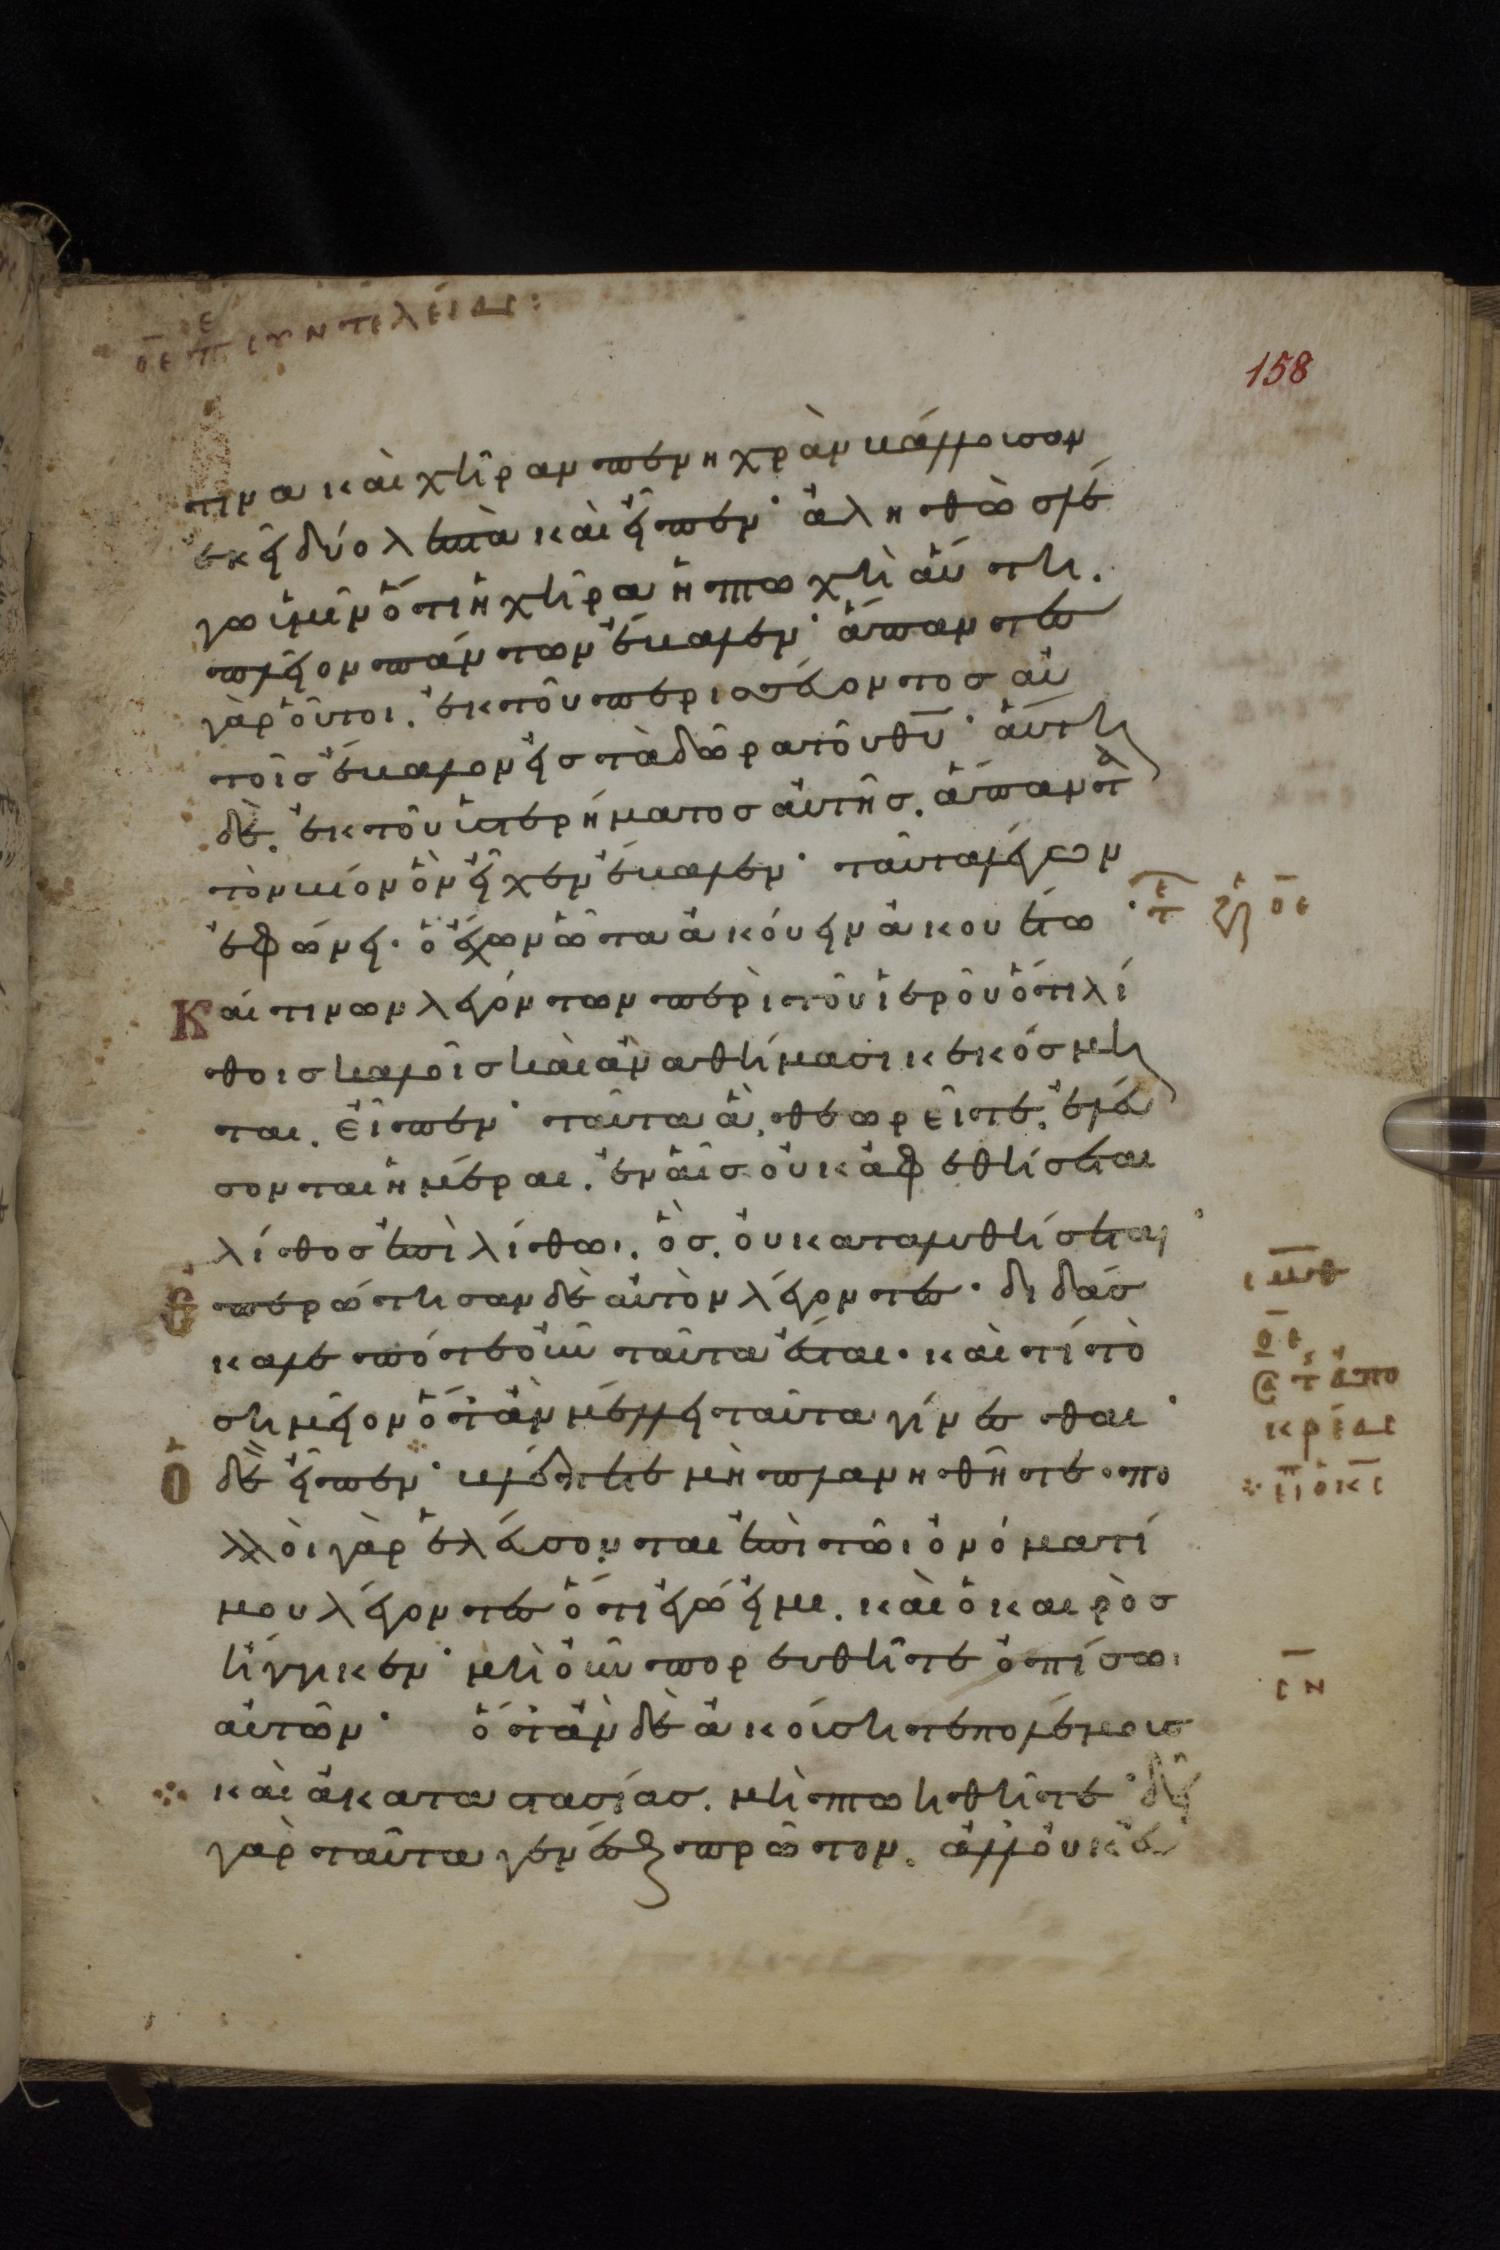 οε πε ϲυντελείας:
158
τινα καὶ χήραν πενηχρὰν βάλλουσαν
ἐκεῖ δύο λεπτὰ καὶ εἶπεν· ἀληθῶσ λέ
γω ὑμῖν ὅτι ἡ χῆρα ἡ πτωχὴ αὕτη.
πλεῖον πάντων ἔβαλεν· ἅπαντεσ
γὰρ οὗτοι. ἐκ τοῦ περισσεύοντοσ αὐ
τοῖσ ἔβαλον εἰσ τὰ δῶρα τοῦ θυ· αὕτη
δὲ. ἐκ τοῦ ὑστερήματοσ αὐτῆσ. ἅπαντα
τὸν βίον ὃν εἶχεν ἔβαλεν· ταῦτα λέγων
ἐφώνει· ὁ ἔχων ὦτα ἀκούειν ἀκουέτω·
τε ζη οε
Καί τινων λεγόντων περὶ τοῦ ἱεροῦ ὅτι λί
θοισ καλοῖσ καὶ ἀναθήμασι κεκόσμη
ται. εἶπεν· ταῦτα ἃ θεωρεῖτε. ἐλεύ
σονται ἡμέραι. ἐν αἷσ οὐκ ἀφεθήσεται
λίθοσ ἐπὶ λίθωι. ὃσ. οὐ καταλυθήσεται·
Ἐπερώτησαν δὲ αὐτὸν λέγοντεσ· διδάσ
καλε πότε οὖν ταῦτα ἔσται· καὶ τί τὸ
σημεῖον ὅταν μέλλει ταῦτα γίνεσθαι·
Ὁ δὲ εἶπεν· βλέπετε μὴ πλανηθῆτε· πο
λλοὶ γὰρ ἐλεύσονται ἐπὶ τῶι ὀνόματί
μου λέγοντεσ ὅτι ἐγώ εἰμι. καὶ ὁ καιρὸσ
ἤγγικεν· μὴ οὖν πορευθῆτε ὀπίσω
αὐτῶν· ὅταν δὲ ἀκούσητε πολέμουσ
καὶ ἀκαταστασίασ. μὴ πτωηθῆτε· δεῖ
γὰρ ταῦτα γενέσθαι πρῶτον. ἀλλ' οὐκ εὐ